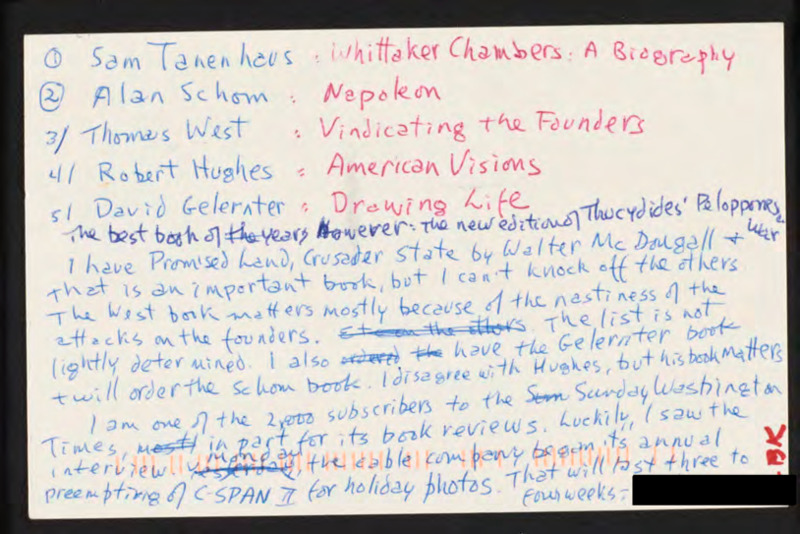 ① Sam Tanenhaus : Whittaker Chambers: A Biography
② Alan Schom : Napoleon
3/ Thomas West : Vindicating the Founders
4/ Robert Hughes : American Visions
5/ David Gelernter : Drawing Life
The best book of the years However: The new edition of Thucydides' Peloppones
War
I have Promised Land, Crusader State by Walter McDougall +
that is an important book, but I can't knock off the others
The West book matters mostly because of the nastiness of the
attacks on the founders. The list is not
lightly determined. I also ordered the have the Gelernter book
+ will order the Schom book. I disagree with Hughes, but his book matters
I am one of the 2,000 subscribers to the Sun Sunday Washington
Times, mostl in part for its book reviews. Luckily, I saw the
interview yesterday monday, the cable company began its annual
preempting of C-SPAN II for holiday photos. That will last three to
four weeks -
BK